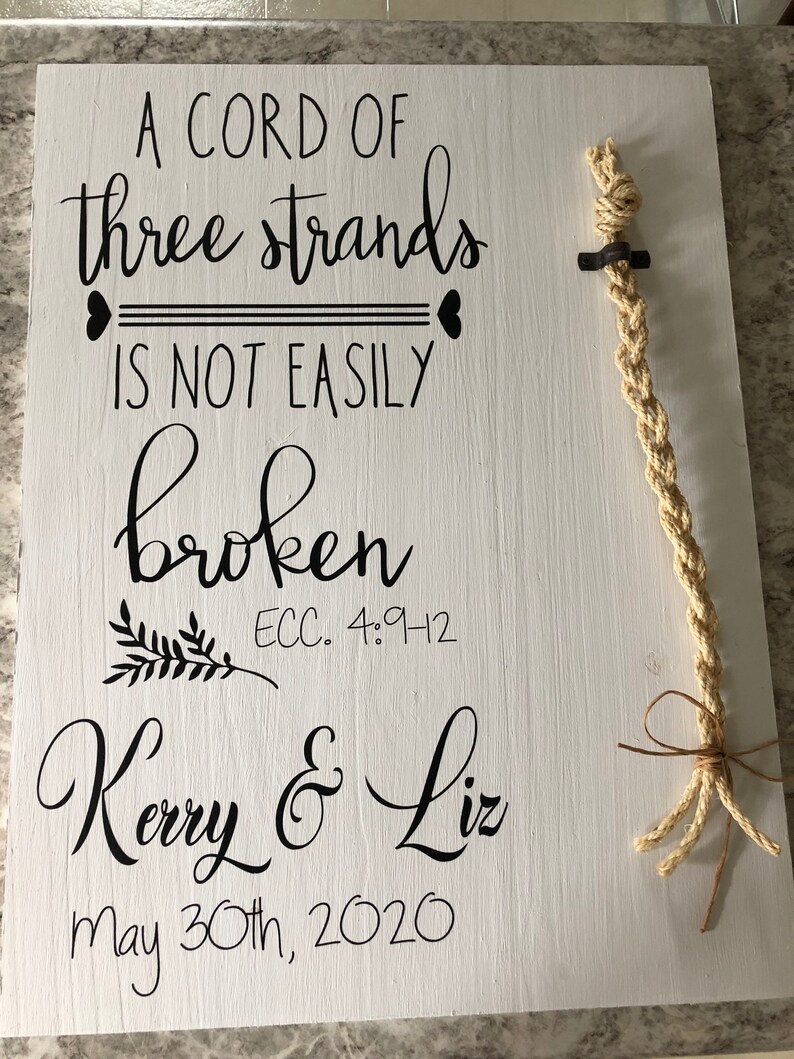 A CORD OF
three strands
IS NOT EASILY
broken
ECC. 4:9-12
Kerry & Liz
May 30th, 2020